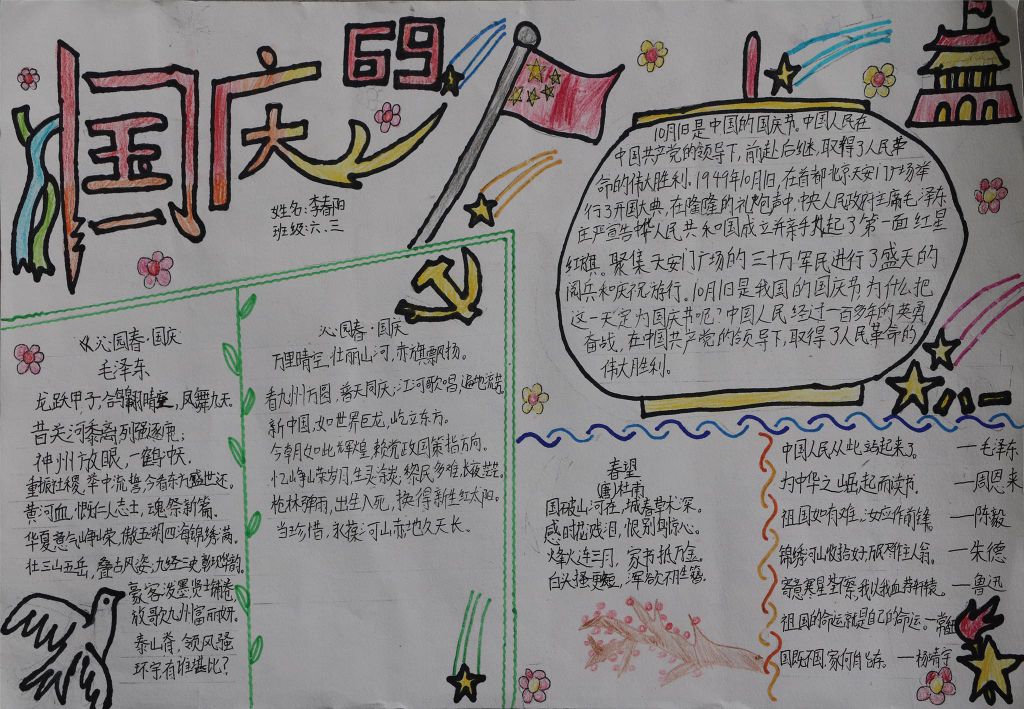 国庆
69
姓名:李春阳
班级:六.三
10月1日是中国的国庆节。中国人民在
中国共产党的领导下,前赴后继,取得了人民革
命的伟大胜利。1949年10月1日,在首都北京天安门广场举
行了开国大典,在隆隆的礼炮声中,中央人民政府主席毛泽东
庄严宣告中华人民共和国成立并亲手升起了第一面红星
红旗。聚集天安门广场的三十万军民进行了盛大的
阅兵和庆祝游行。10月1日是我国的国庆节为什么把
这一天定为国庆节呢?中国人民经过一百多年的英勇
奋战,在中国共产党的领导下,取得了人民革命的
伟大胜利。
八一
《沁园春·国庆
毛泽东
龙跃甲子,鸽翱晴空,凤舞九天。
昔关河黍离,列强逐鹿;
神州放眼,一鹤冲天。
重振社稷,举中流誓,今看东方盛世还。
黄河血,慨仁人志士,魂祭新篇。
华夏意气峥嵘,傲五湖四海锦绣满。
壮三山五岳,叠古风姿,九经三史,彰现华韵。
豪客泼墨,贤士铺卷,
放歌九州富丽妍。
泰山脊,领风骚
环宇,有谁堪比?
沁园春·国庆
万里晴空,壮丽山河,赤旗飘扬。
看九州方圆,普天同庆;江河歌唱,遍地流芳。
新中国,如世界巨龙,屹立东方。
今朝如此辉煌,赖党政国策指方向。
忆峥嵘岁月,生灵涂炭,黎民多难,长夜茫茫。
枪林弹雨,出生入死,换得新生红太阳。
当珍惜,永葆河山赤地久天长。
春望
(唐)杜甫
国破山河在,城春草木深。
感时花溅泪,恨别鸟惊心。
烽火连三月,家书抵万金。
白头搔更短,浑欲不胜簪。
中国人民从此站起来了。 —毛泽东
为中华之崛起而读书。 —周恩来
祖国如有难,汝应作前锋。 —陈毅
锦绣河山收拾好,万民尽作主人翁。 —朱德
寄意寒星荃不察,我以我血荐轩辕。 —鲁迅
祖国的命运就是自己的命运。
国既不国,家何自存。 —杨靖宇